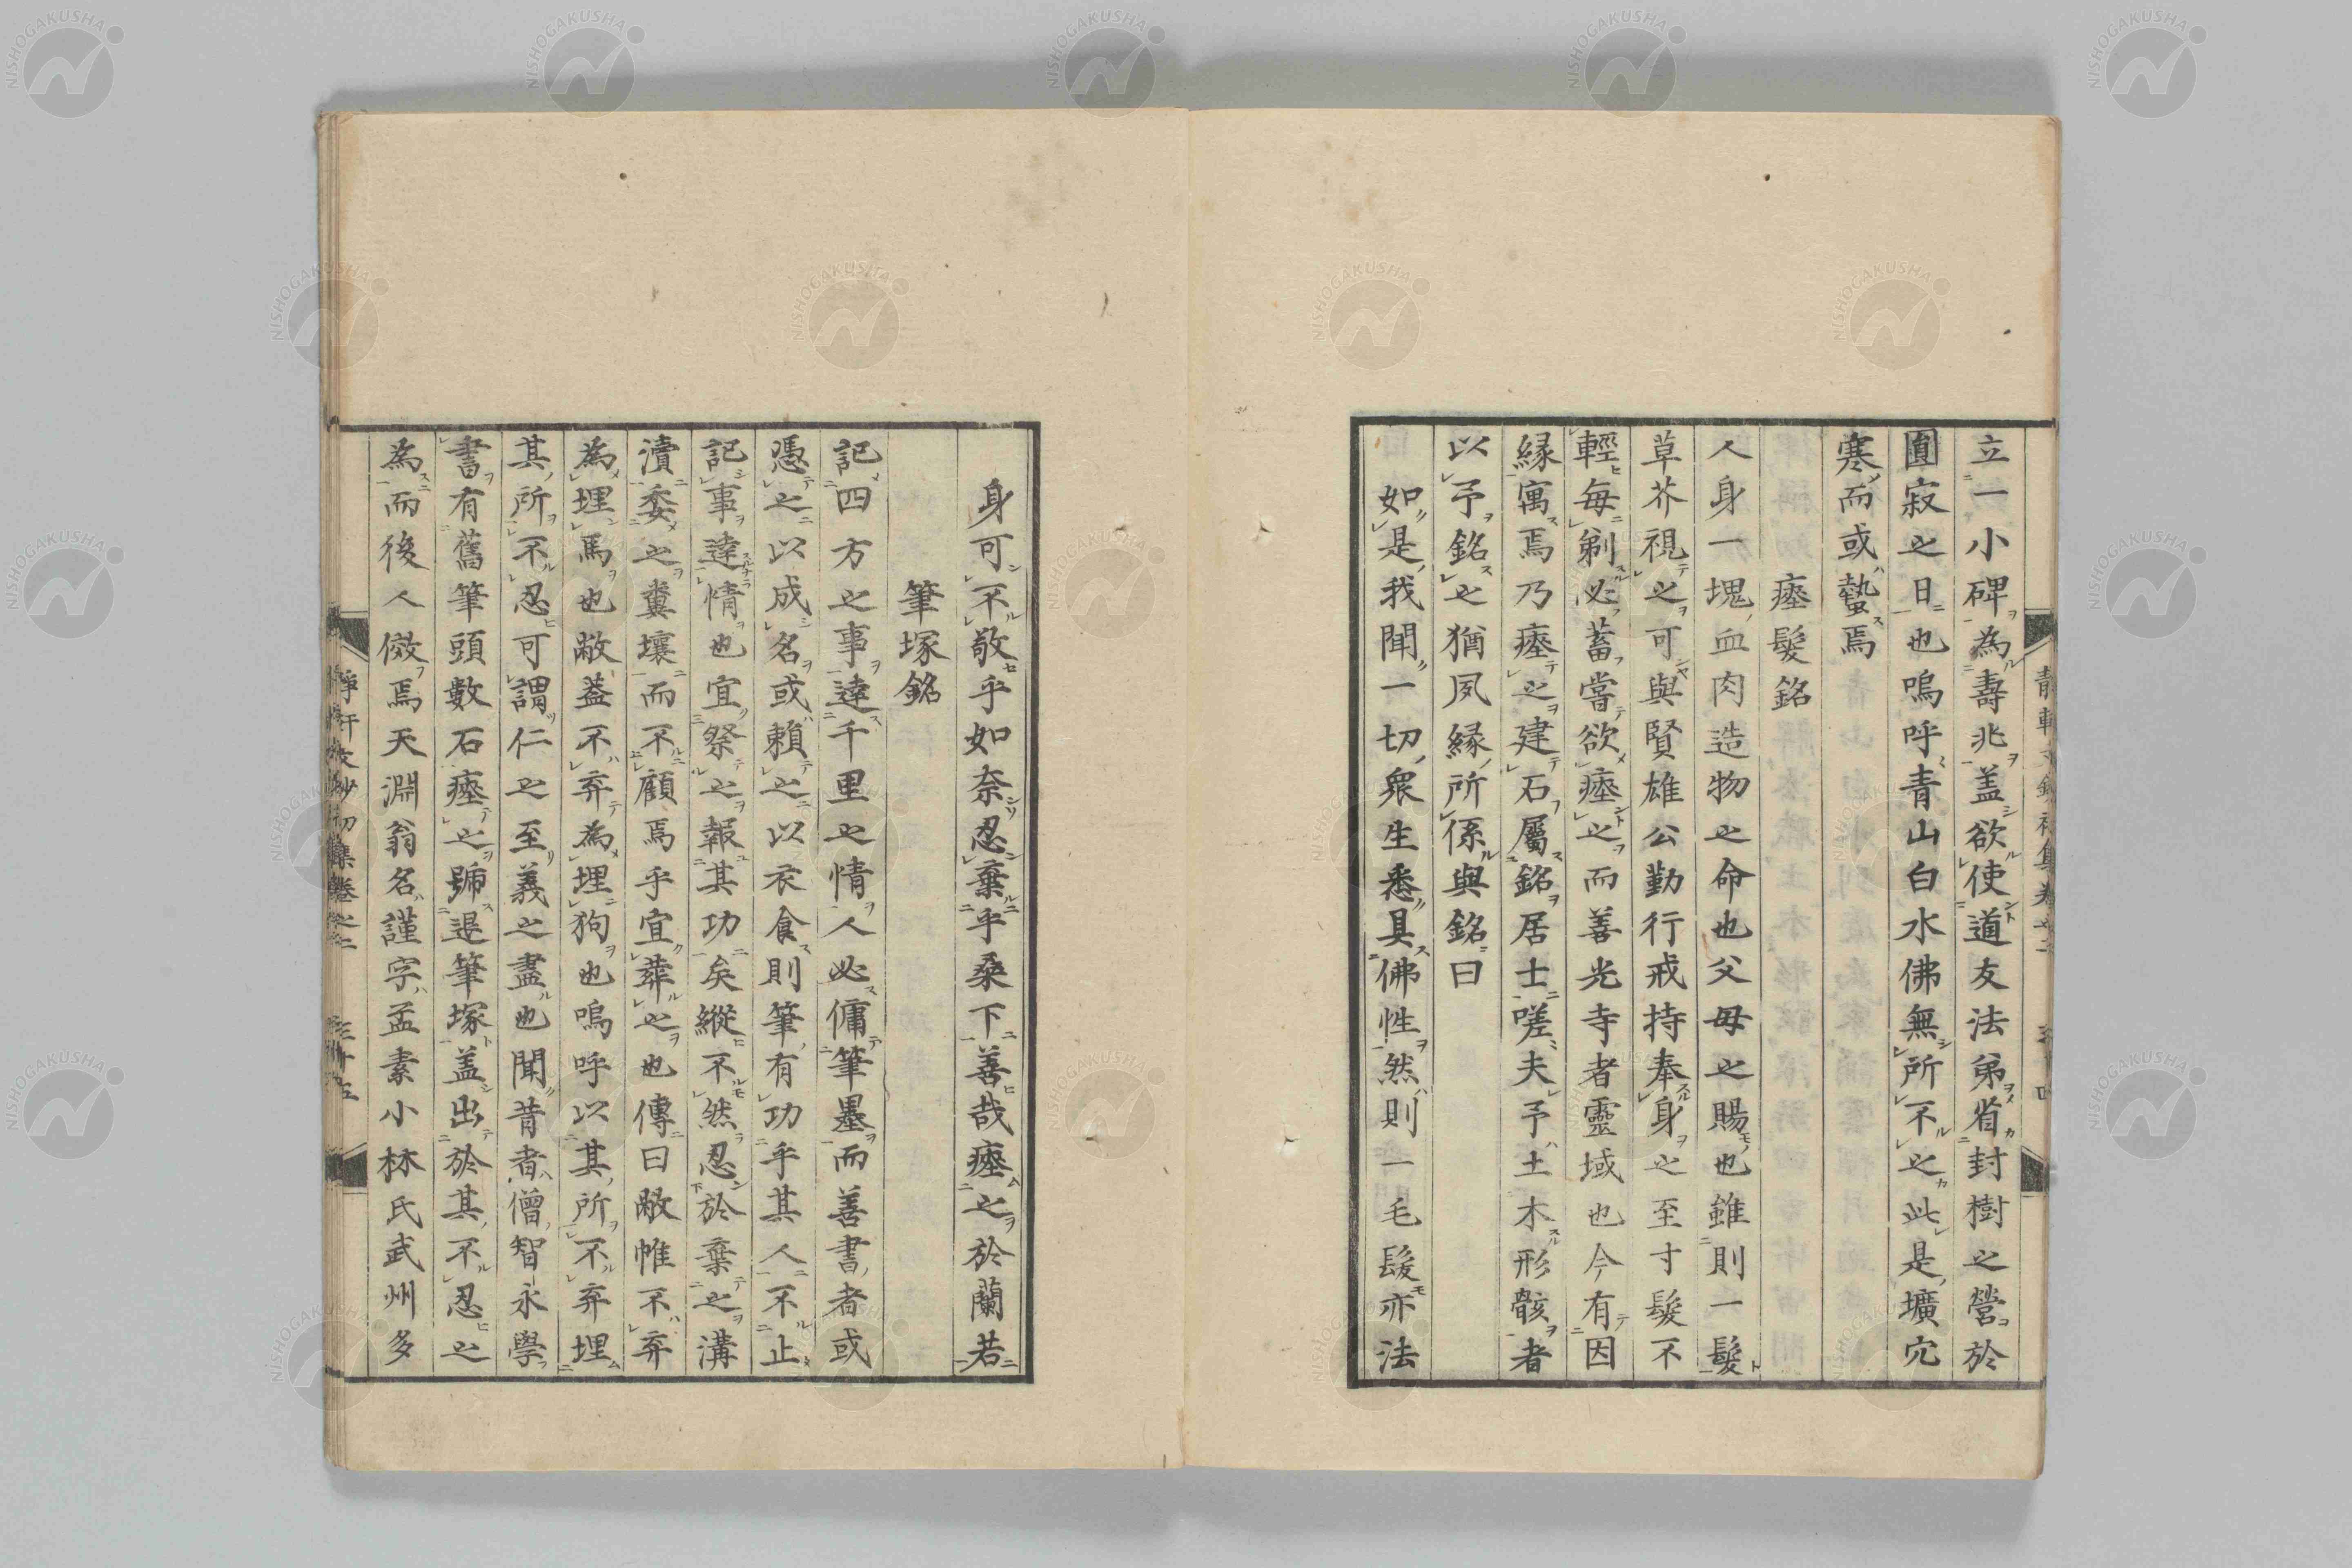 立一小碑為壽兆盖欲使道友法弟省封樹之營於
圓寂之日也嗚呼青山白水佛無所不之此是壙穴
寒而或蟄焉
瘞髮銘
人身一塊血肉造物之命也父母之賜也雖則一髮
草芥視之可與賢雄公勤行戒持奉身之至寸髮不
輕毎剃必蓄嘗欲瘞之而善光寺者靈域也今有因
縁寓焉乃瘞之建石屬銘居士嗟夫予土木形骸者
以予銘之猶夙縁所係與銘曰
如是我聞一切衆生悉具佛性然則一毛髮亦法
身可不敬乎如奈忍棄乎桑下善哉瘞之於蘭若
筆塚銘
記四方之事達千里之情人必傭筆墨而善書者或
憑之以成名或頼之以衣食則筆有功乎其人不止
記事達情也宜祭之報其功矣縱不然忍於棄之溝
瀆委之糞壤而不顧焉乎宜葬之也傳曰敝帷不弃
為埋馬也敝蓋不弃為埋狗也嗚呼以其所不弃埋
其所不忍可謂仁之至義之盡也聞昔者僧智永學
書有舊筆頭數石瘞之號退筆塚盖出於其不忍之
為而後人倣焉天淵翁名謹字孟素小林氏武州多
靜軒文鈔初集卷之二 三十五
NISHOGAKUSHA